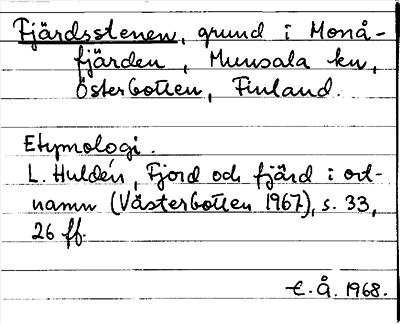 Fjärdsstenen, grund i Monå-
fjärden, Munsala kn,
Österbotten, Finland.
Etymologi.
L. Huldén, Fjord och fjärd i ort-
namn (Västerbotten 1967), s. 33,
26 ff.
E. Å. 1968.